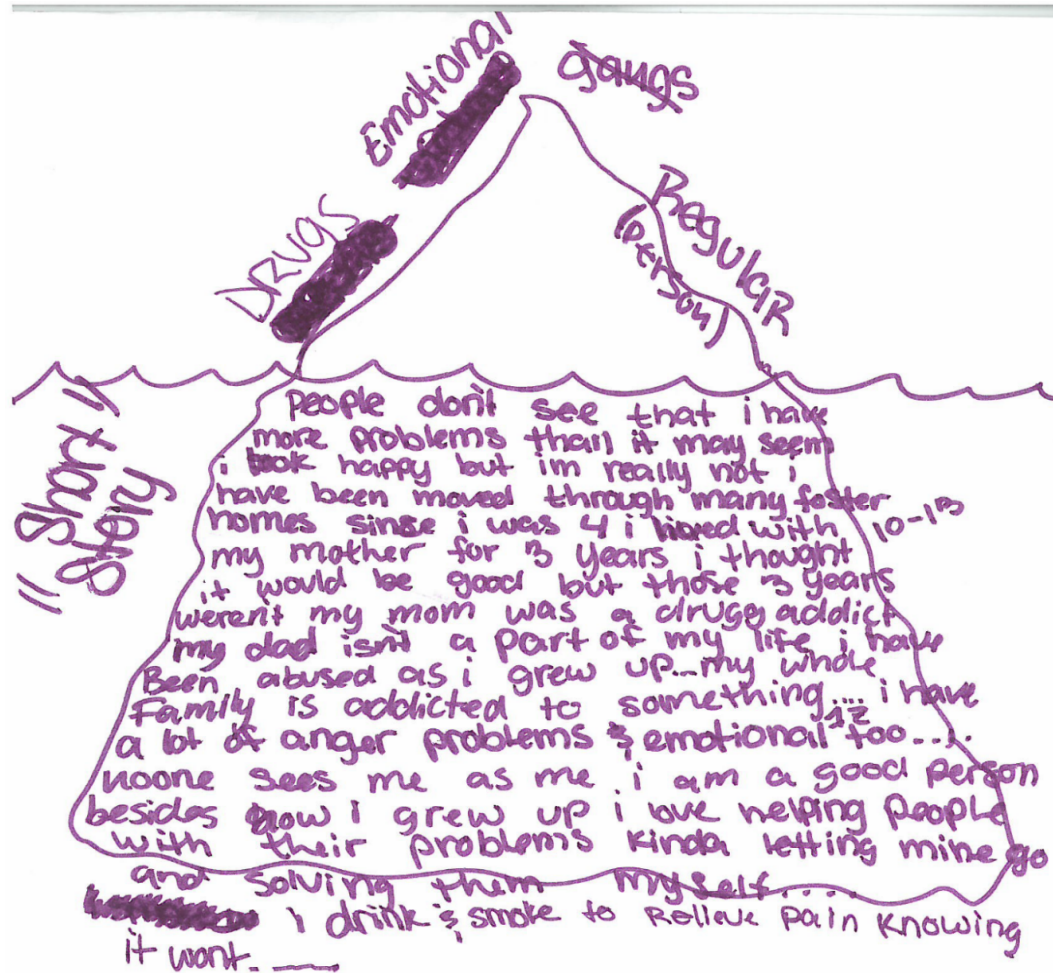 Emotional
gangs
DRUgs
RegulaR
(person)
"Short
Story"
people don't see that i have
more problems than it may seem
i look happy but im really not i
have been moved through many foster
homes sinse i was 4 i lived with 10-13
my mother for 3 years i thought
it would be good but those 3 years
weren't my mom was a drugg addict
my dad isn't a part of my life i have
Been abused as i grew up... my whole
Family is addicted to something... i have
a lot of anger problems & emotional 12 too....
noone sees me as me i am a good person
besides how I grew up i love helping people
with their problems kinda letting mine go
and solving them myself....
i drink & smoke to Relieve pain knowing
it wont.